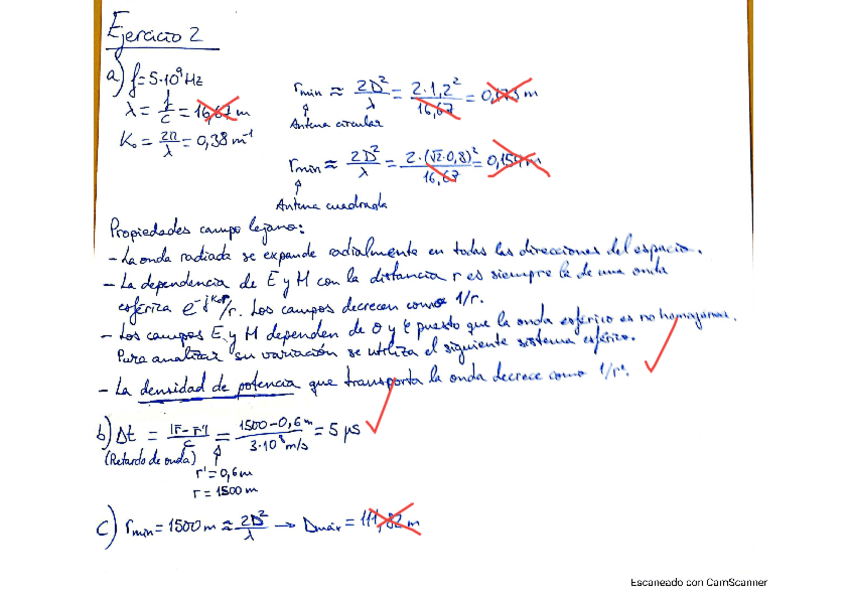 Ejercicio 2
a) f=5·10⁹Hz
λ = f/c = 16,67 m
K₀ = 2π/λ = 0,38 m⁻¹
rmin ≈ 2D²/λ = 2·1,2²/16,67 = 0,173 m
Antena circular
rmin ≈ 2D²/λ = 2·(√2·0,8)²/16,67 = 0,154 m
Antena cuadrada
Propiedades campo lejano:
- La onda radiada se expande radialmente en todas las direcciones del espacio.
- La dependencia de E y H con la distancia r es siempre la de una onda
esférica e⁻ʲᴷ⁰ʳ/r. Los campos decrecen como 1/r.
- Los campos E y H dependen de θ y φ puesto que la onda esférica es no homogénea.
Para analizar su variación se utiliza el siguiente sistema esférico.
- La densidad de potencia que transporta la onda decrece como 1/r².
b) Δt = |r̄-r̄'|/c = 1500-0,6 m/3·10⁸ m/s = 5 μs
(Retardo de onda)
r'=0,6m
r = 1500 m
c) rmin = 1500 m ≈ 2D²/λ → Dmáx = 111,82 m
Escaneado con CamScanner